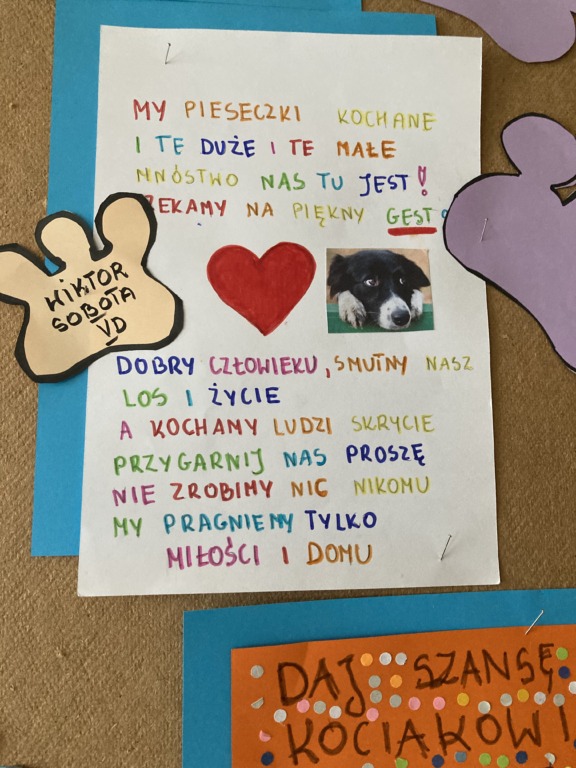 MY PIESECZKI KOCHANE
I TE DUŻE I TE MAŁE
MNÓSTWO NAS TU JEST!
ZEKAMY NA PIĘKNY GEST
WIKTOR
SOBOTA
VD
DOBRY CZŁOWIEKU, SMUTNY NASZ
LOS I ŻYCIE
A KOCHAMY LUDZI SKRYCIE
PRZYGARNIJ NAS PROSZĘ
NIE ZROBIMY NIC NIKOMU
MY PRAGNIEMY TYLKO
MIŁOŚCI I DOMU
DAJ SZANSĘ
KOCIAKOWI